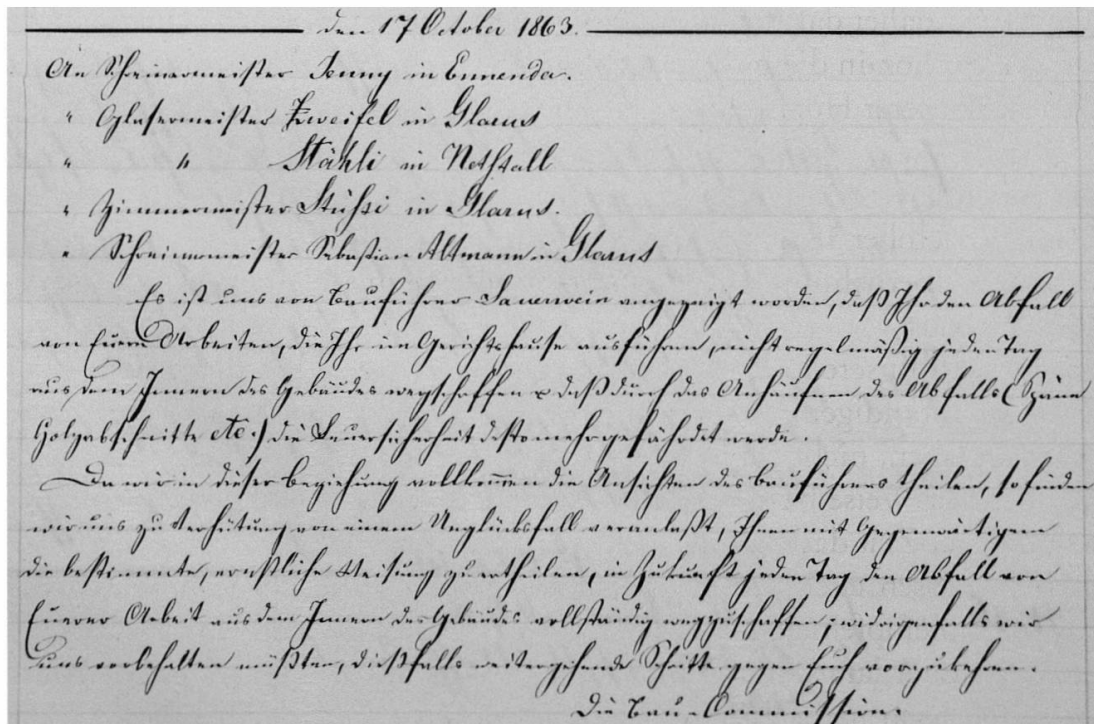 den 17 October 1863.
An Schreinermeister Jenny in Ennenda.
" Glasermeister Zweifel in Glarus
" " Stähli in Netstall
" Zimmermeister Stüssi in Glarus.
" Schreinermeister Sebastian Altmann in Glarus
Es ist uns von Bauführer Sauerwein angezeigt worden, daß Ihr den Abfall
von Euern Arbeiten, die Ihr im Gerichtshause ausführen, nicht regelmäßig jeden Tag
aus dem Innern des Gebäudes wegschaffen & daß durch das Anhäufen des Abfalls (Späne
Holzabschnitte etc.) die Feuersicherheit desto mehr gefährdet werde.
Da wir in dieser Beziehung vollkommen die Ansichten des Bauführers theilen, so finden
wir uns zu Verhütung von einem Unglücksfall veranlaßt, Ihnen mit Gegenwärtigem
die bestimmte, ernstliche Weisung zu ertheilen, in Zukunft jeden Tag den Abfall von
Euerer Arbeit aus dem Innern des Gebäudes vollständig wegzuschaffen; widrigenfalls wir
uns vorbehalten müßten, dießfalls weitergehende Schritte gegen Euch vorzukehren.
Die Bau-Commission.